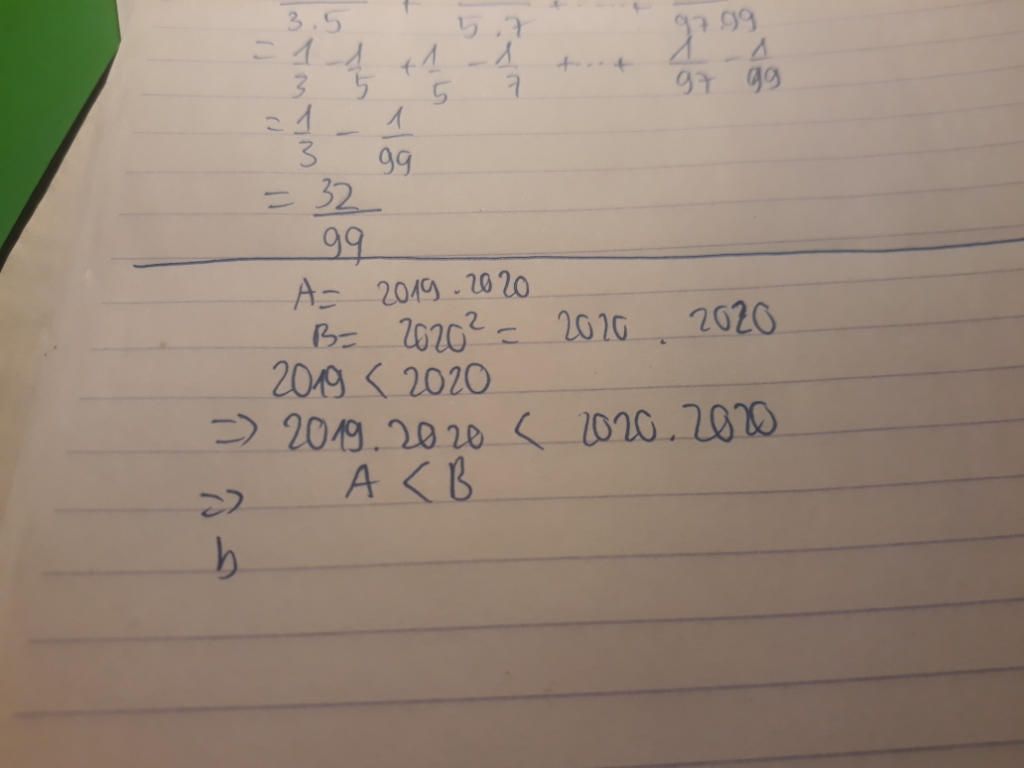 3.5 + 5.7 +...+ 97.99
= 1/3 - 1/5 + 1/5 - 1/7 +...+ 1/97 - 1/99
= 1/3 - 1/99
= 32/99
A= 2019.2020
B= 2020² = 2020 . 2020
2019 < 2020
=> 2019.2020 < 2020.2020
=> A < B
b